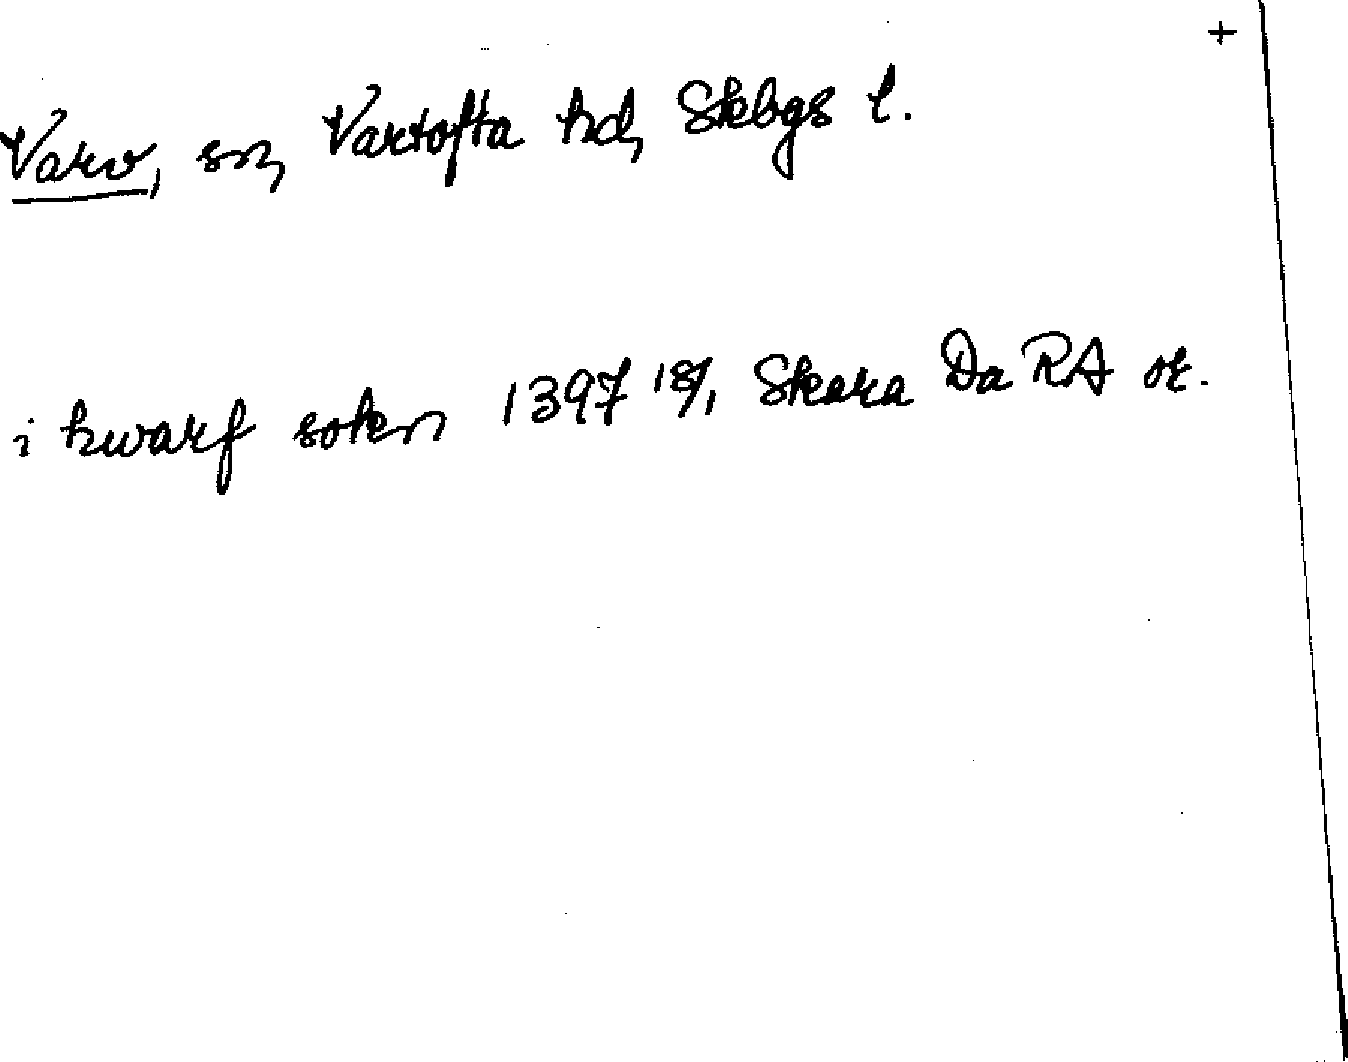 +
Varv, sn, Vartofta hd, Skbgs l.
i hwarf sokn 1397 18/1 Skara Da RA or.